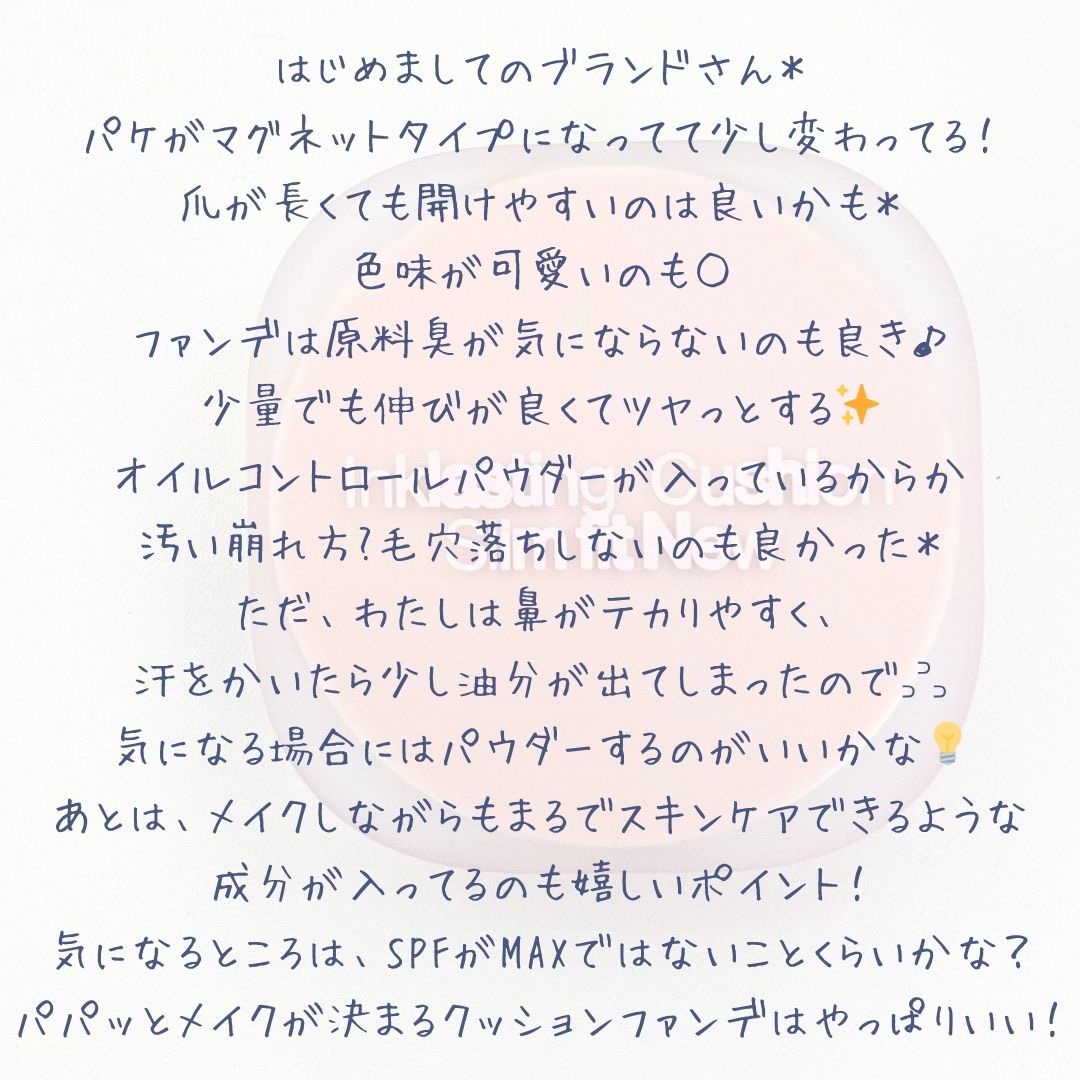 はじめましてのブランドさん*
パケがマグネットタイプになってて少し変わってる!
爪が長くても開けやすいのは良いかも*
色味が可愛いのも○
ファンデは原料臭が気にならないのも良き♪
少量でも伸びが良くてツヤっとする✨
オイルコントロールパウダーが入っているからか
汚い崩れ方?毛穴落ちしないのも良かった*
ただ、わたしは鼻がテカりやすく、
汗をかいたら少し油分が出てしまったので
気になる場合にはパウダーするのがいいかな💡
あとは、メイクしながらもまるでスキンケアできるような
成分が入ってるのも嬉しいポイント!
気になるところは、SPFがMAXではないことくらいかな?
パパッとメイクが決まるクッションファンデはやっぱりいい!
Inklasting Cushion
Slim fit New